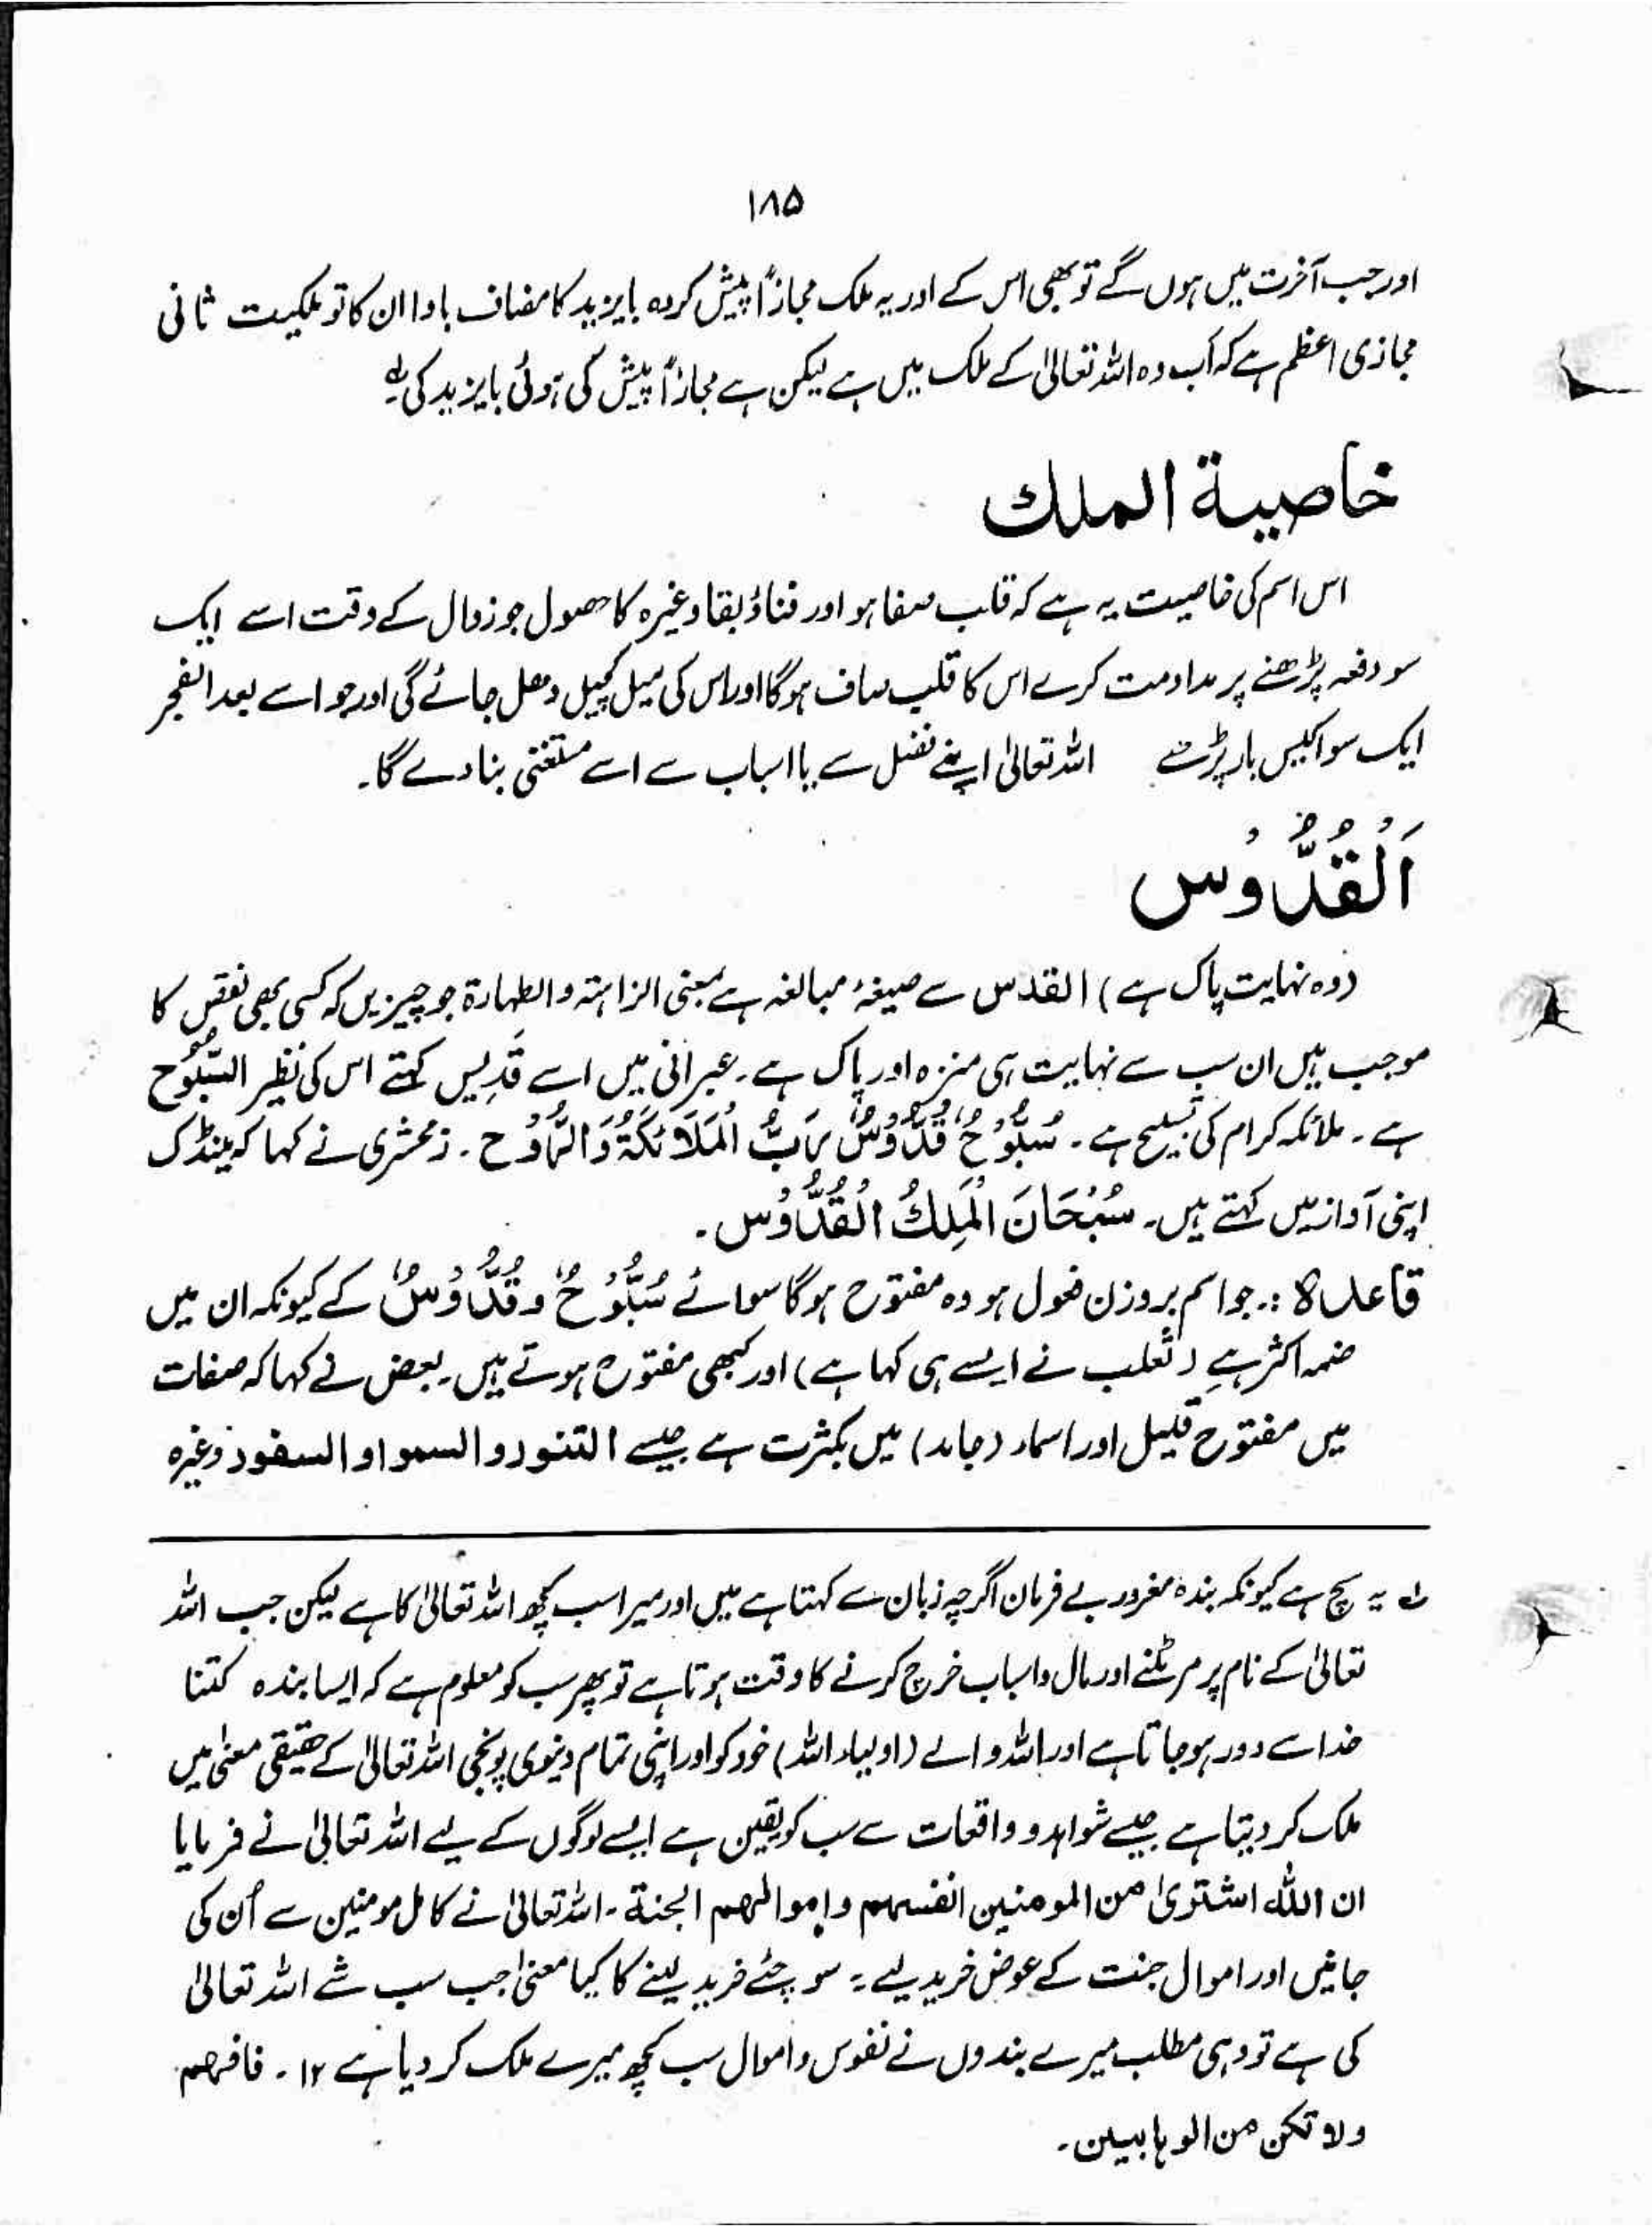 ۱۸۵
اور جب آخرت میں ہوں گے تو بھی اس کے اور یہ ملک مجازاً پیش کردہ بایزید کا مضاف باوا ان کا تو ملکیت ثانی
مجازی اعظم ہے کہ اب وہ اللہ تعالیٰ کے ملک میں ہے لیکن ہے مجازاً پیش کی ہوئی بایزید کی۔
خاصیة الملك
اس اسم کی خاصیت یہ ہے کہ قلب صفا ہو اور فناؤ بقا وغیرہ کا حصول جو زوال کے وقت اسے ایک
سو دفعہ پڑھنے پر مداومت کرے اس کا قلب صاف ہوگا اور اس کی میل کچیل دھل جائے گی اور جو اسے بعد الفجر
ایک سو اکیس بار پڑھے اللہ تعالیٰ اپنے فضل سے یا اسباب سے اسے مستغنی بنا دے گا۔
اَلْقُدُّوْس
(وہ نہایت پاک ہے) القدس سے صیغۂ مبالغہ ہے بمعنی النزاہتہ والطہارۃ جو چیزیں کہ کسی بھی نقص کا
موجب ہیں ان سب سے نہایت ہی منزہ اور پاک ہے۔ عبرانی میں اسے قَدِیس کہتے اس کی نظیر السُّبُّوْح
ہے۔ ملائکہ کرام کی تسبیح ہے۔ سُبُّوْحٌ قُدُّوْسٌ رَبُّ الْمَلَائِکَةِ وَالرُّوْح۔ زمخشری نے کہا کہ مینڈک
اپنی آواز میں کہتے ہیں۔ سُبْحَانَ الْمَلِكُ الْقُدُّوْس۔
قاعدہ :۔ جو اسم بروزن فعول ہو وہ مفتوح ہوگا سوائے سُبُّوْحٌ و قُدُّوْسٌ کے کیونکہ ان میں
ضمہ اکثر ہے (ثعلب نے ایسے ہی کہا ہے) اور کبھی مفتوح ہوتے ہیں۔ بعض نے کہا کہ صفات
میں مفتوح قلیل اور اسماء (جامد) میں بکثرت ہے جیسے التنور والسمور والسفود وغیرہ
یہ سچ ہے کیونکہ بندہ مغرور بے فرمان اگرچہ زبان سے کہتا ہے میں اور میرا سب کچھ اللہ تعالیٰ کا ہے لیکن جب اللہ
تعالیٰ کے نام پر مرمٹنے اور مال و اسباب خرچ کرنے کا وقت ہوتا ہے تو پھر سب کو معلوم ہے کہ ایسا بندہ کتنا
خدا سے دور ہو جاتا ہے اور اللہ والے (اولیاء اللہ) خود کو اور اپنی تمام دنیوی پونجی اللہ تعالیٰ کے حقیقی معنیٰ میں
ملک کر دیتا ہے جیسے شواہد و واقعات سے سب کو یقین ہے ایسے لوگوں کے لیے اللہ تعالیٰ نے فرمایا
ان اللہ اشتریٰ من المومنین انفسہم واموالہم الجنة۔ اللہ تعالیٰ نے کامل مومنین سے اُن کی
جانیں اور اموال جنت کے عوض خرید لیے۔ سوچئے خرید لینے کا کیا معنیٰ جب سب شے اللہ تعالیٰ
کی ہے تو وہی مطلب میرے بندوں نے نفوس و اموال سب کچھ میرے ملک کر دیا ہے ۱۲۔ فافہم
ولا تکن من الوہابیین۔